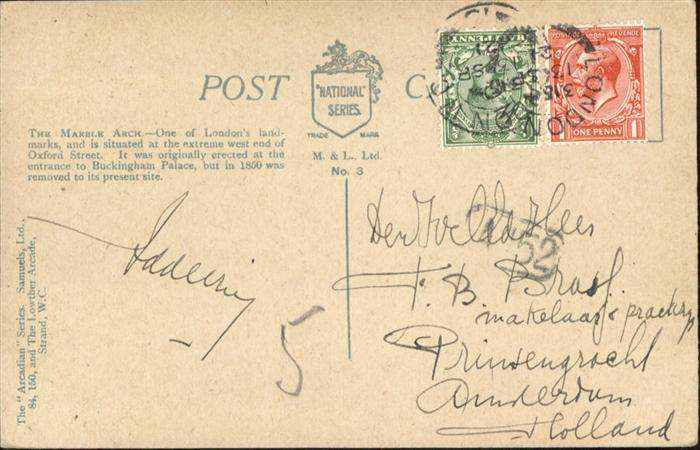 POST C
"NATIONAL"
SERIES.
TRADE MARK
M. & L., Ltd.
No. 3
THE MARBLE ARCH.—One of London's land-
marks, and is situated at the extreme west end of
Oxford Street. It was originally erected at the
entrance to Buckingham Palace, but in 1850 was
removed to its present site.
The "Arcadian" Series. Samuels, Ltd.,
84, 150, and The Lowther Arcade,
Strand, W.C.
HALFPENNY
POSTAGE REVENUE
ONE PENNY
1
LONDON
52
5
F. B.
makelaar
Prinsengracht
Amsterdam
Holland